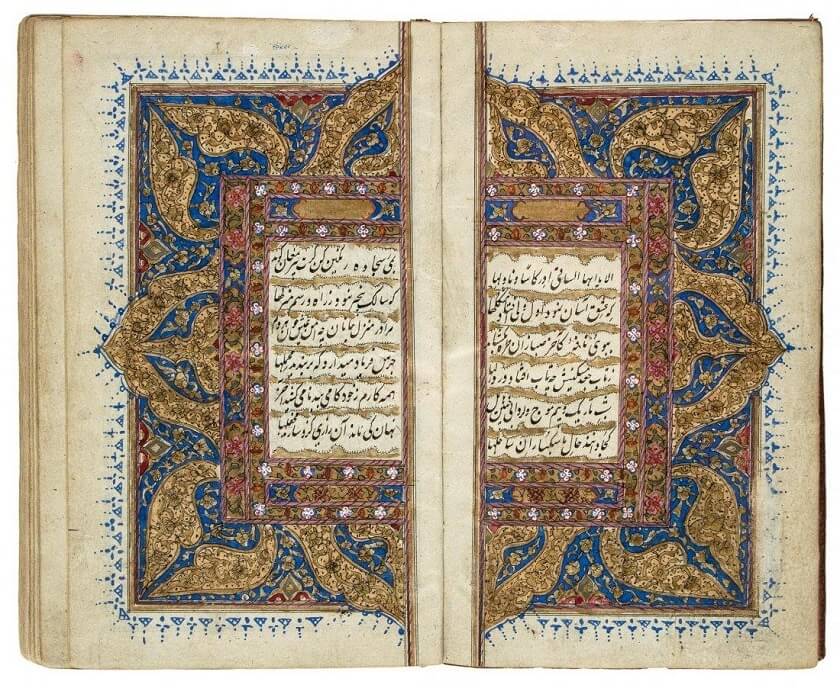 الا یا ایها الساقی ادر کاسا و ناولها
که عشق آسان نمود اول ولی افتاد مشکلها
ببوی نافه کاخر صبا زان طره بگشاید
زتاب جعد مشکینش چه تاب افتاد در دلها
شب تاریک بیم موج و گردابی چنین هایل
کجا دانند حال ما سبکباران ساحلها
بمی سجاده رنگین کن گرت پیر مغان گوید
که سالک بیخبر نبود ز راه و رسم منزلها
مرا در منزل جانان چه امن عیش چون هر دم
جرس فریاد میدارد که بربندید محملها
همه کارم ز خود کامی ببدنامی کشید آخر
نهان کی ماند آن رازی کزو سازند محفلها